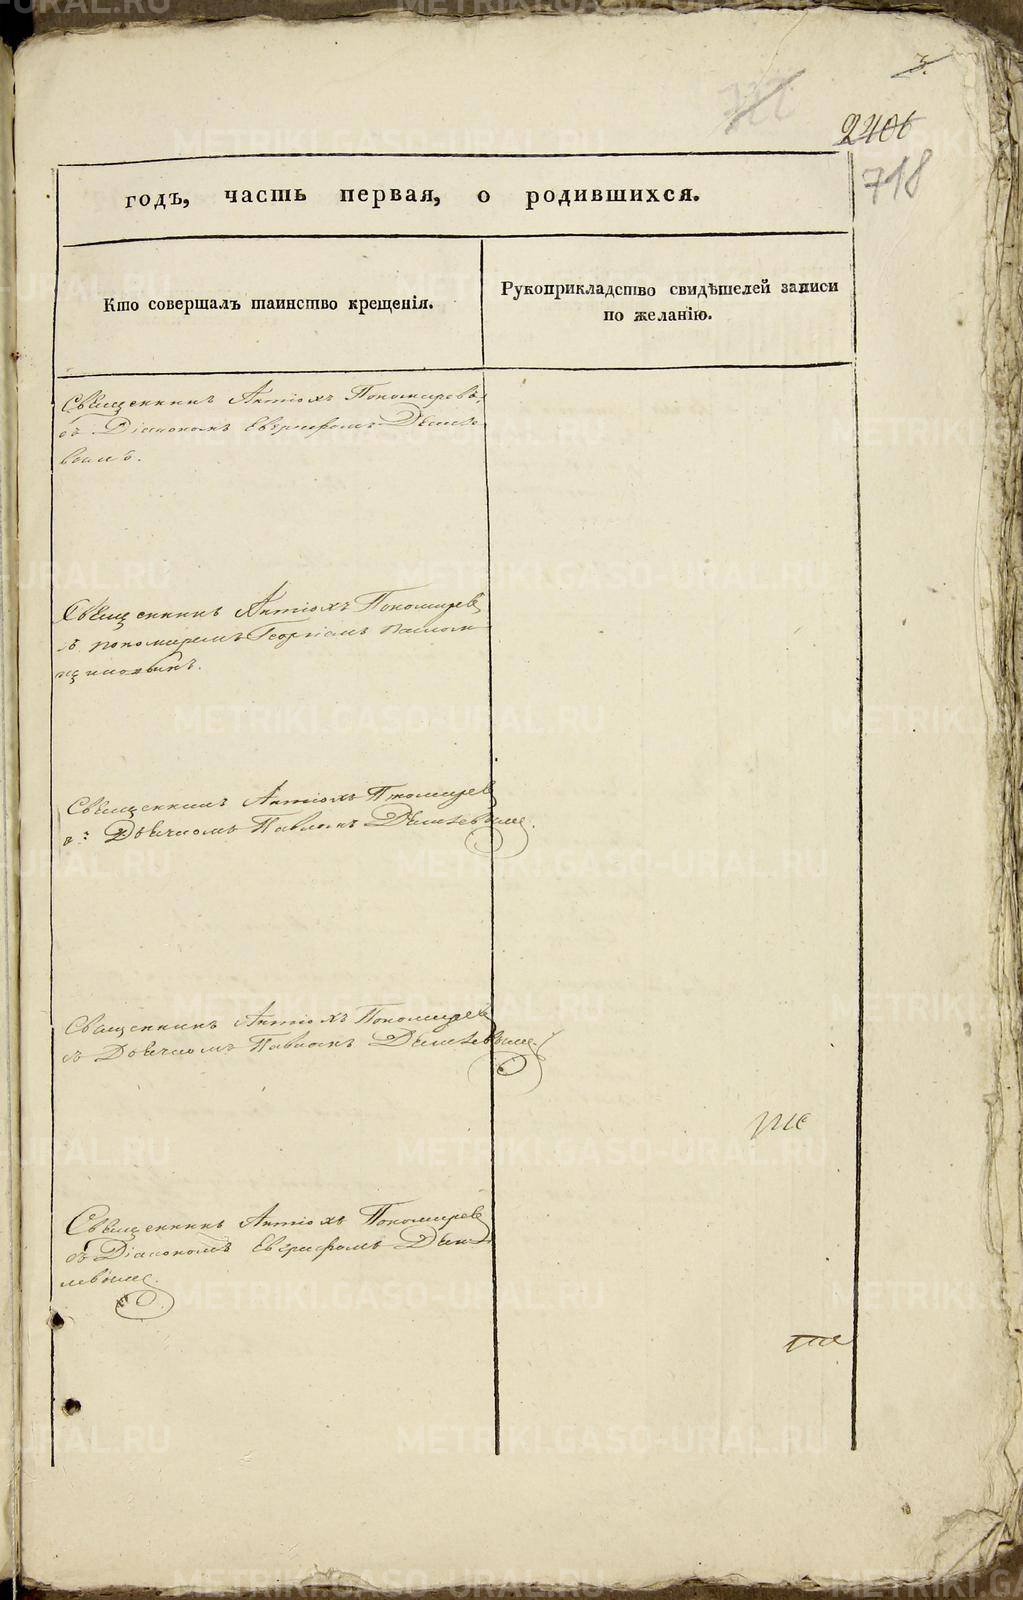 3.
2406
718
годъ, часть первая, о родившихся.
Кто совершалъ таинство крещенія.
Рукоприкладство свидѣтелей записи
по желанію.
Священникъ Антіохъ Пономаревъ,
съ Діакономъ Евграфомъ
Священникъ Антіохъ Пономарев
съ пономаремъ Георгіемъ
Священникъ Антіохъ Пономарев
съ Дьячкомъ Павломъ
Священникъ Антіохъ Пономарев
съ Дьячкомъ Павломъ
Священникъ Антіохъ Пономарев
съ Діакономъ Евграфомъ
METRIKI.GASO-URAL.RU